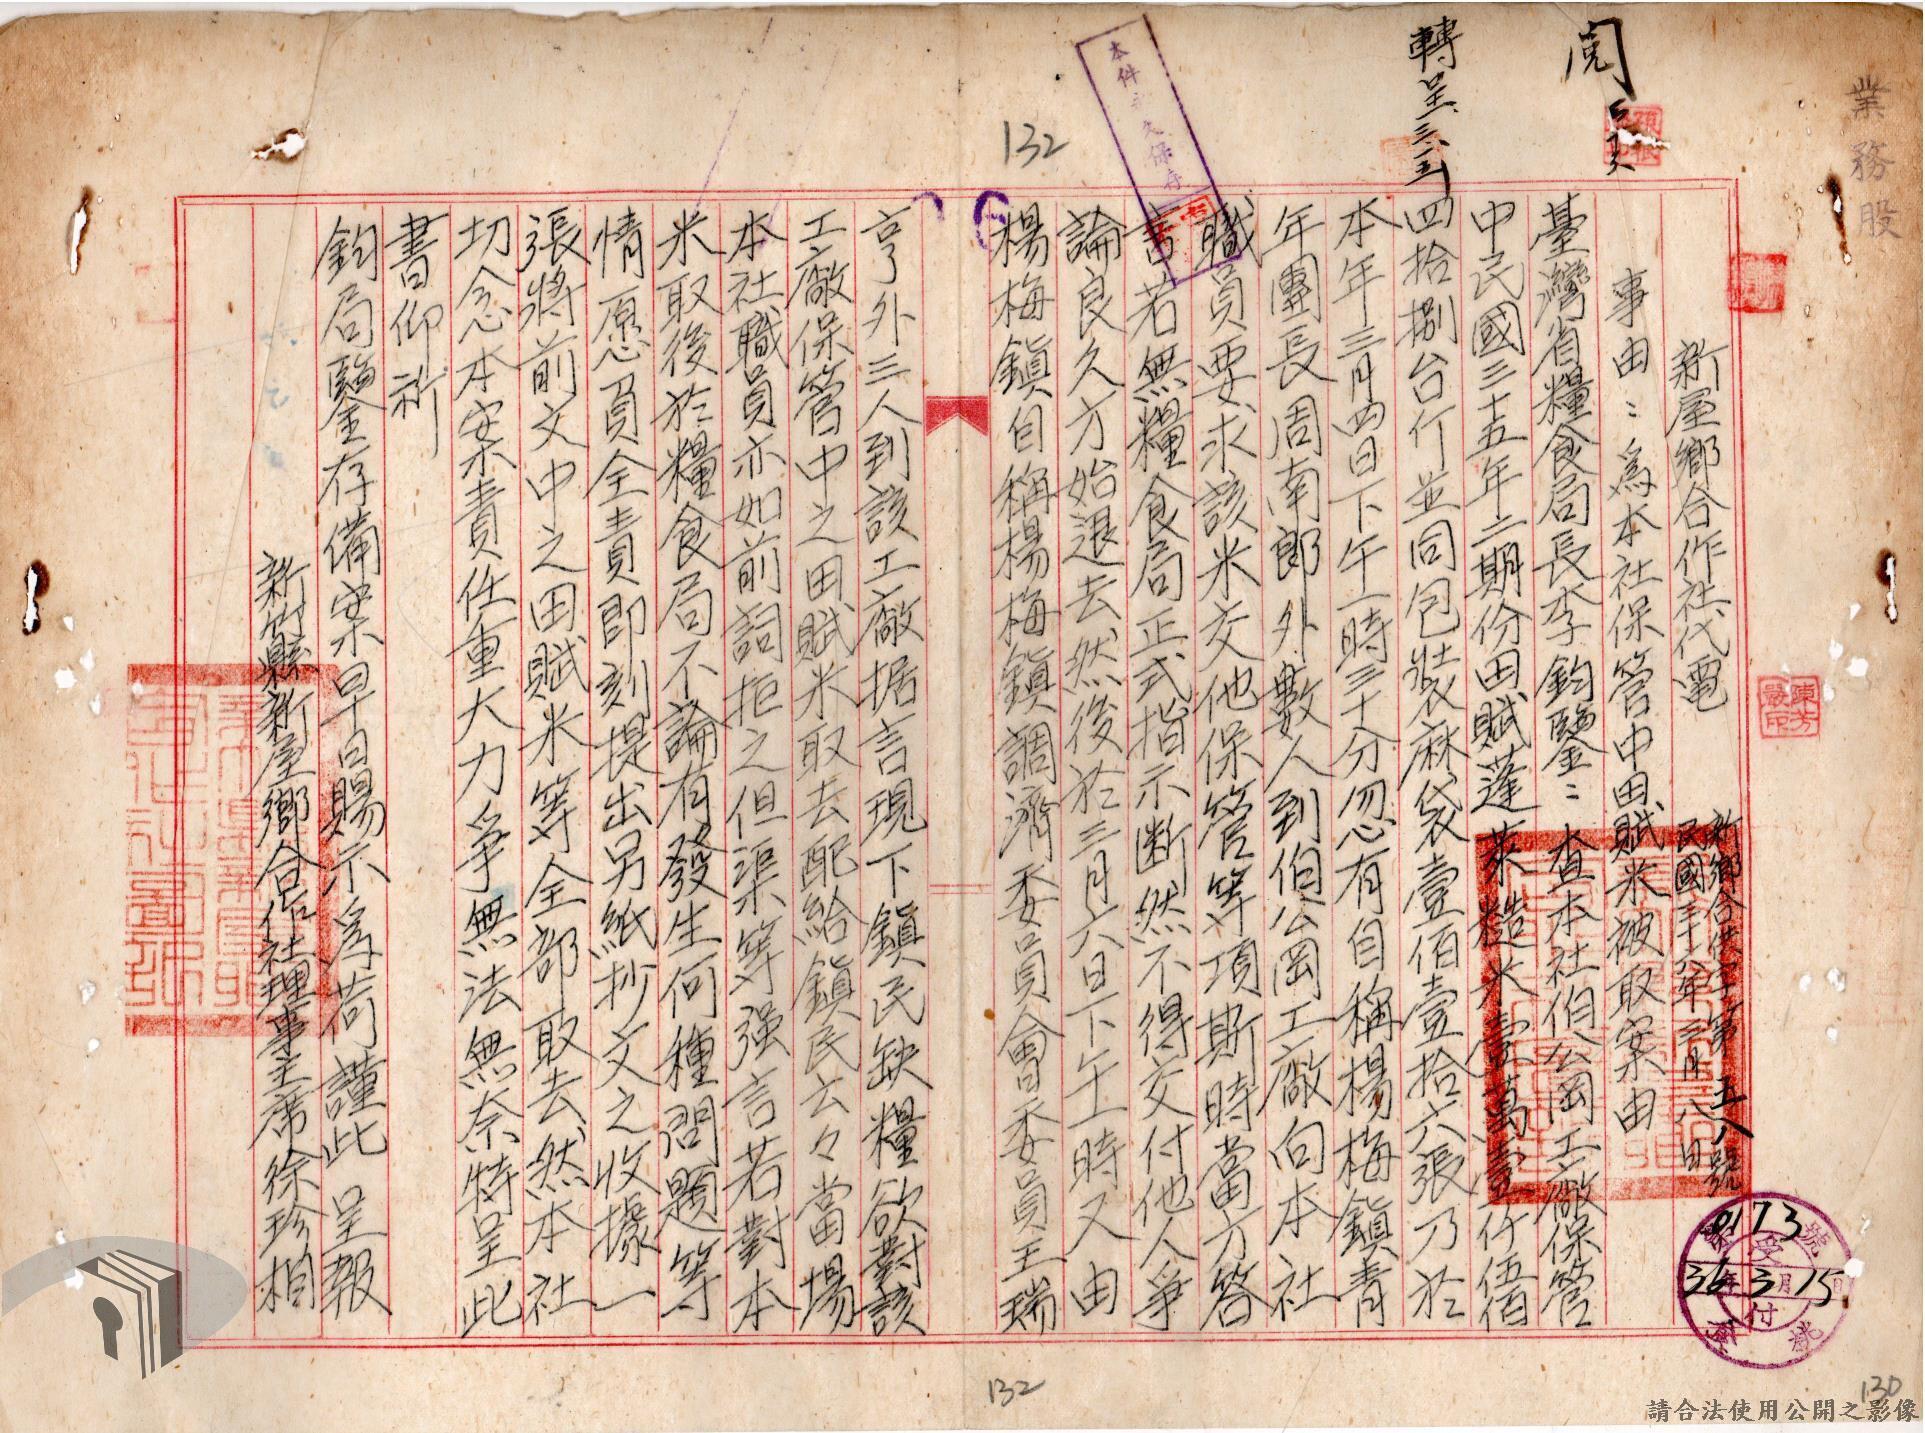 業務股
閱
轉呈 三、
132
本件永久保存
新屋鄉合作社代電
新鄉合供字第五八號
民國三十六年三月八日
事由：為本社保管中田賦米被取案由
臺灣省糧食局長李鈞鑒：查本社伯公岡工廠保管
中民國三十五年二期份田賦蓬萊糙米壹萬壹仟伍佰
四拾捌台斤並同包裝麻袋壹佰壹拾六張乃於
本年三月四日下午一時三十分忽有自稱楊梅鎮青
年團長周南郎外數人到伯公岡工廠向本社
職員要求該米交他保管等項斯時當方答
言若無糧食局正式指示斷然不得交付他人爭
論良久方始退去然後於三月六日下午一時又由
楊梅鎮自稱楊梅鎮調濟委員會委員王瑞
亨外三人到該工廠据言現下鎮民缺糧欲對該
工廠保管中之田賦米取去配給鎮民云々當場
本社職員亦如前詞拒之但渠等强言若對本
米取後於糧食局不論有發生何種問題等
情愿負全責即刻提出另紙抄文之收據一
張將前文中之田賦米等全部取去然本社
切念本案責任重大力爭無法無奈特呈此
書仰祈
鈞局鑒存備案早日賜示為荷謹此 呈報
新竹縣新屋鄉合作社理事主席徐珍相
陳芳
印
號
0173
受
36年3月15日
付
132
130
請合法使用公開之影像